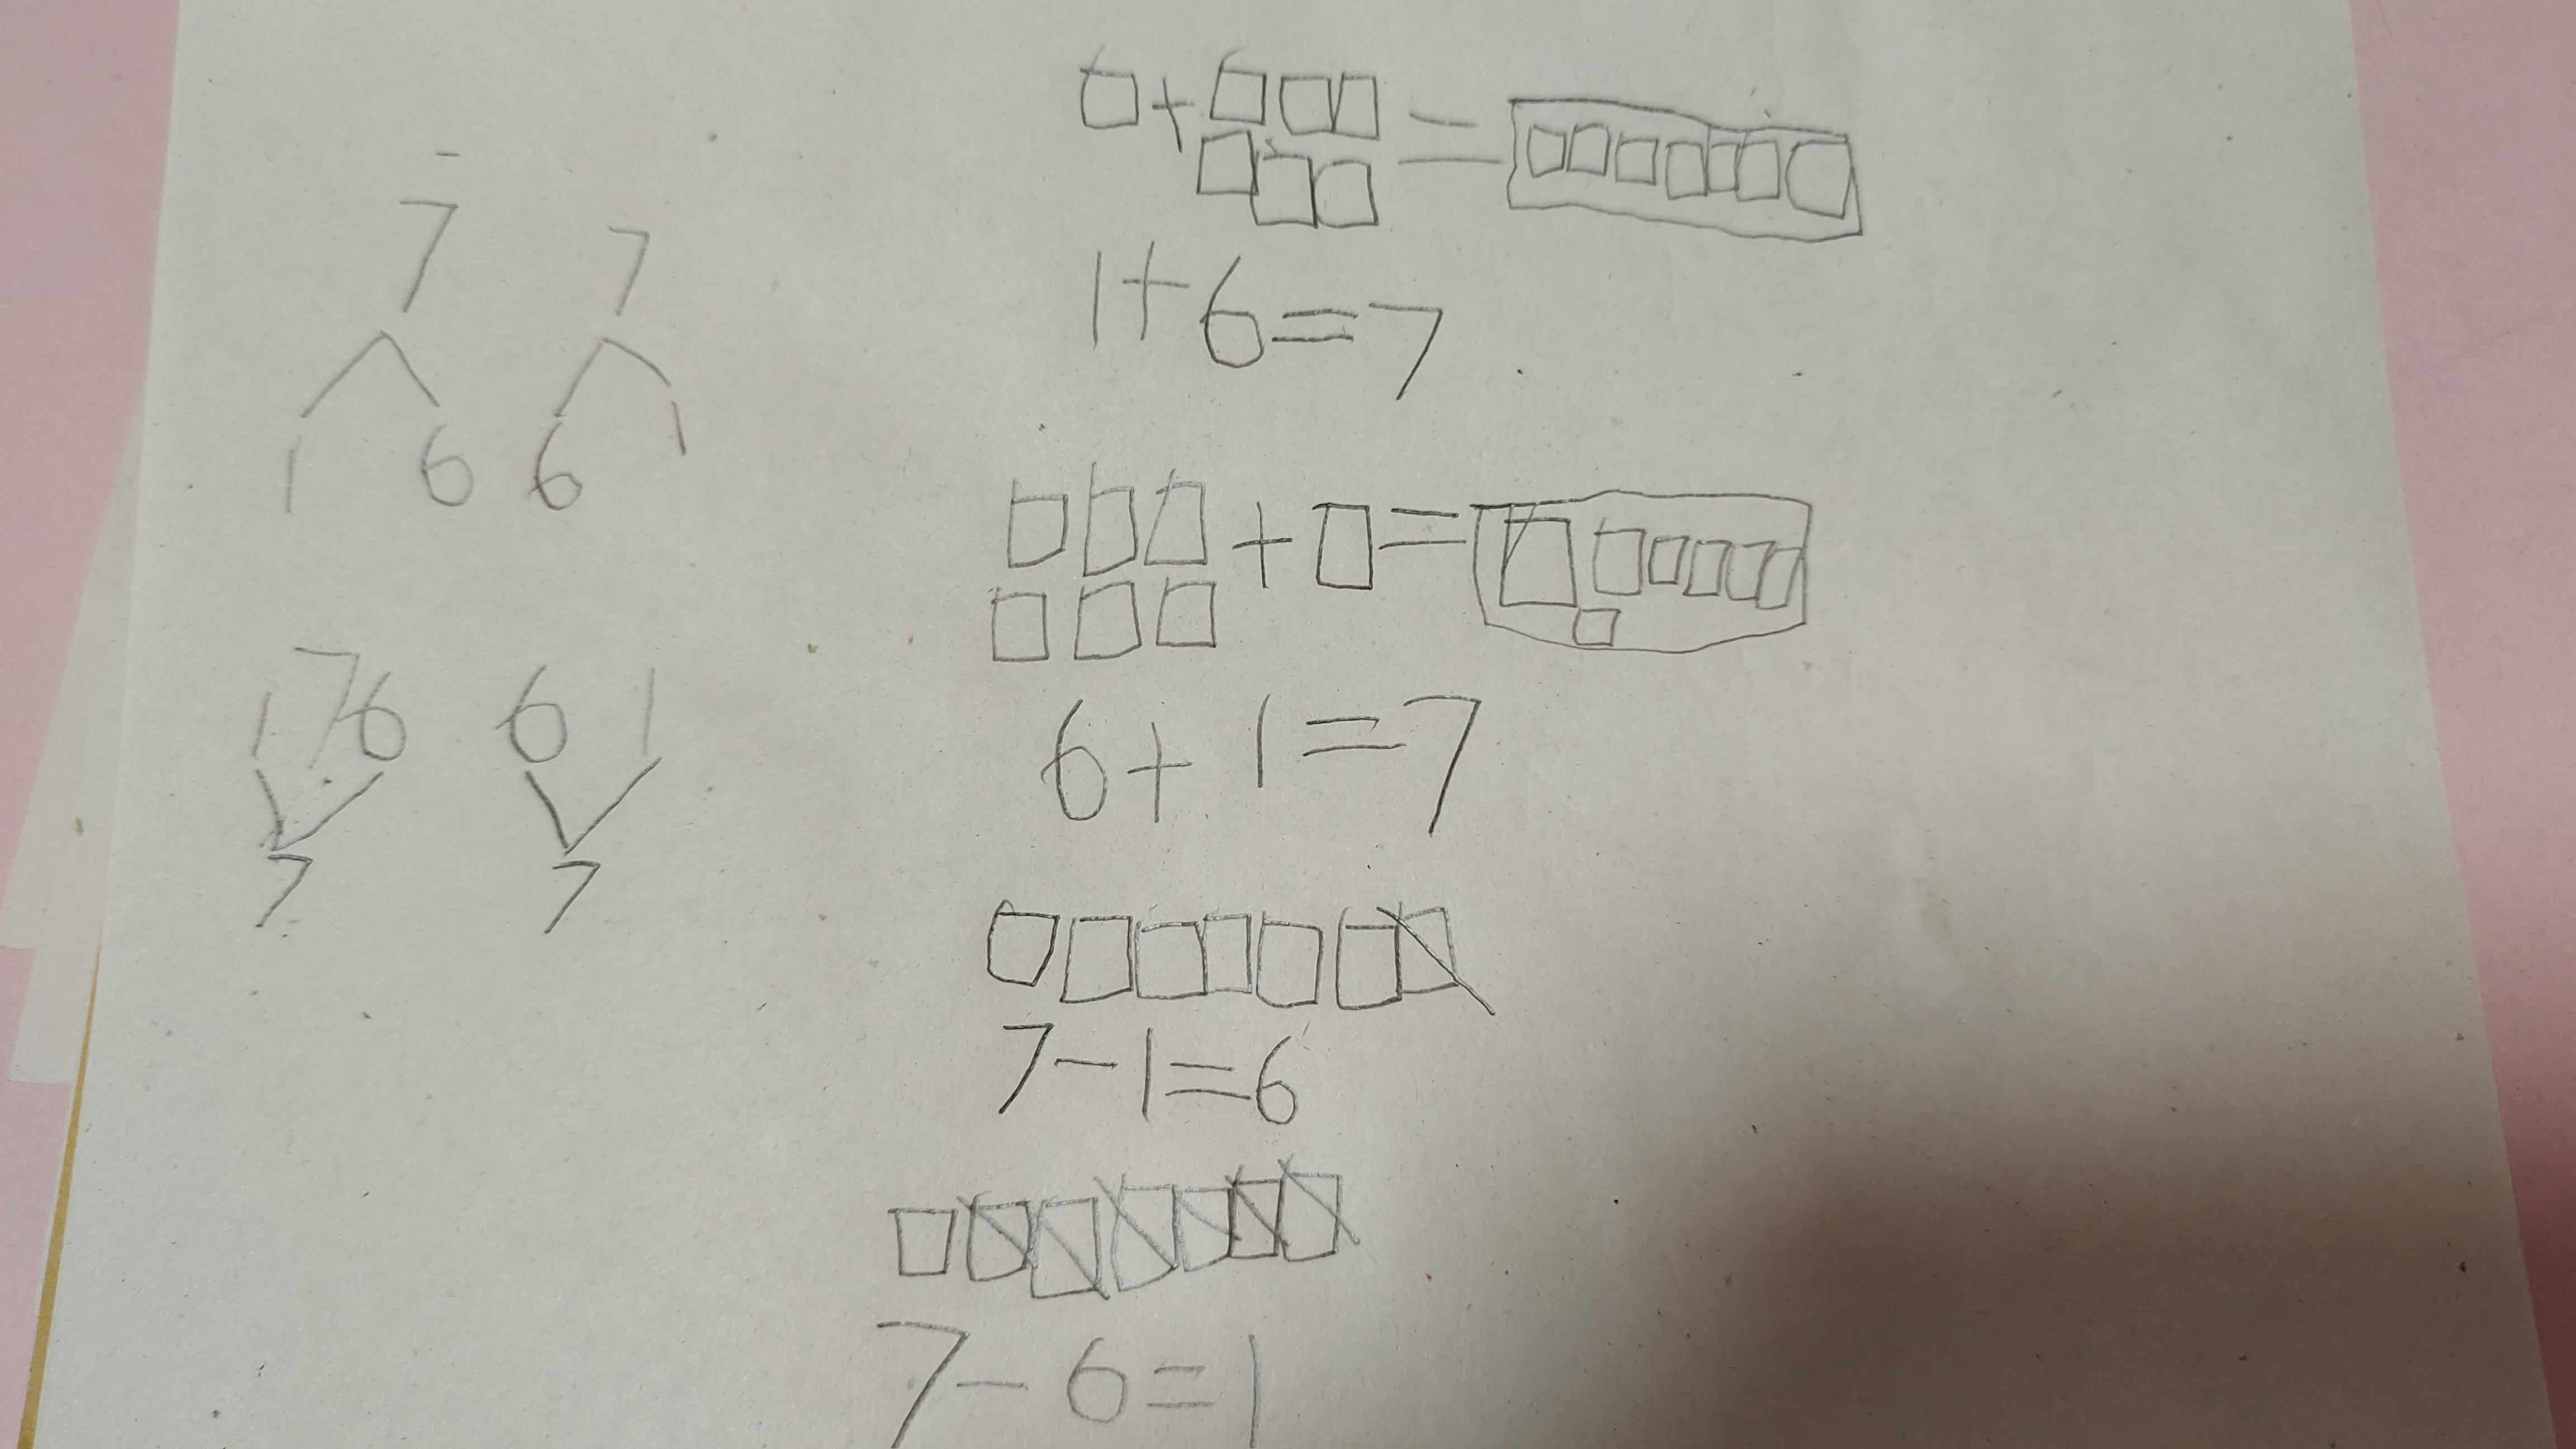 7 7
1 6 6 1
1 7 6 6 1
7 7
+ =
1+6=7
+ =
6+1=7
7-1=6
7-6=1